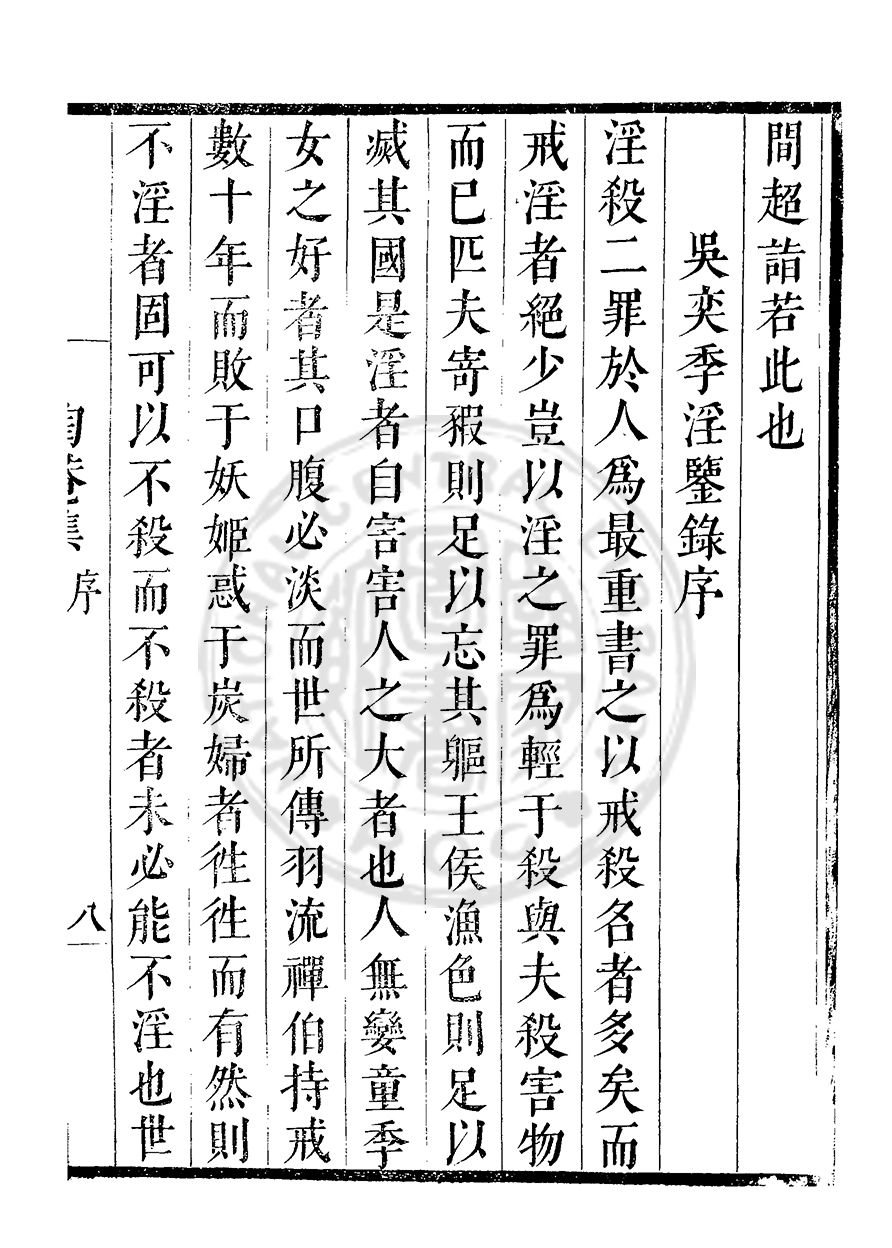 間超詣若此也
吳奕季淫鑒錄序
淫殺二罪於人爲最重書之以戒殺名者多矣而
戒淫者絕少豈以淫之罪爲輕于殺與夫殺害物
而已匹夫寄豭則足以忘其軀王侯漁色則足以
滅其國是淫者自害害人之大者也人無孌童季
女之好者其口腹必淡而世所傳羽流禪伯持戒
數十年而敗于妖姬惑于炭婦者徃徃而有然則
不淫者固可以不殺而不殺者未必能不淫也世
陶菴集 序 八